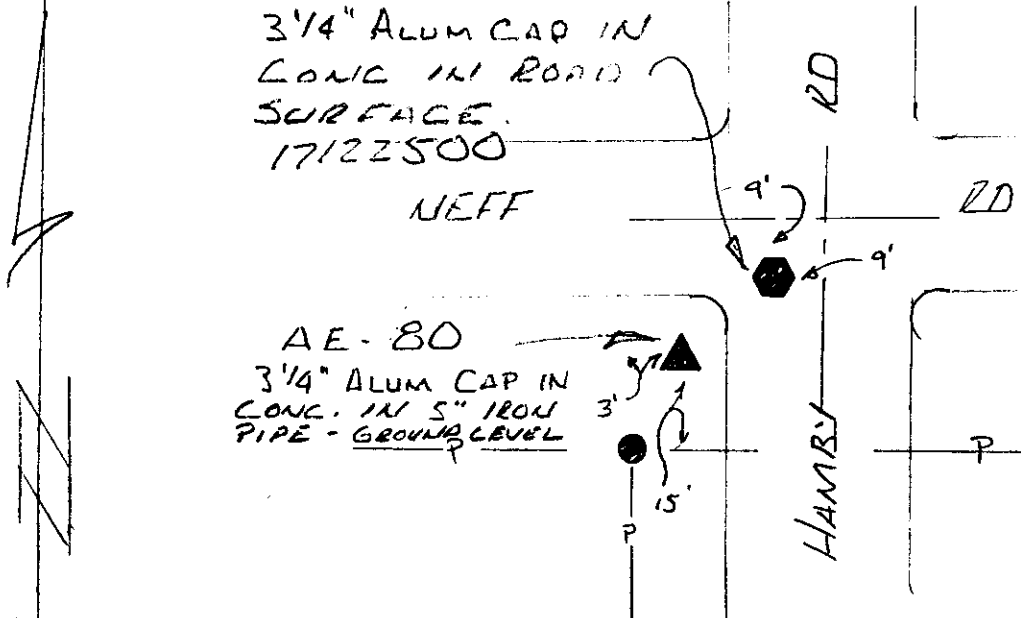 3 1/4" ALUM CAP IN
CONC IN ROAD
SURFACE.
17122500
NEFF
RD
RD
9'
9'
AE-80
3 1/4" ALUM CAP IN
CONC. IN 5" IRON
PIPE - GROUND LEVEL
3'
15'
P
P
P
HAMBY
N